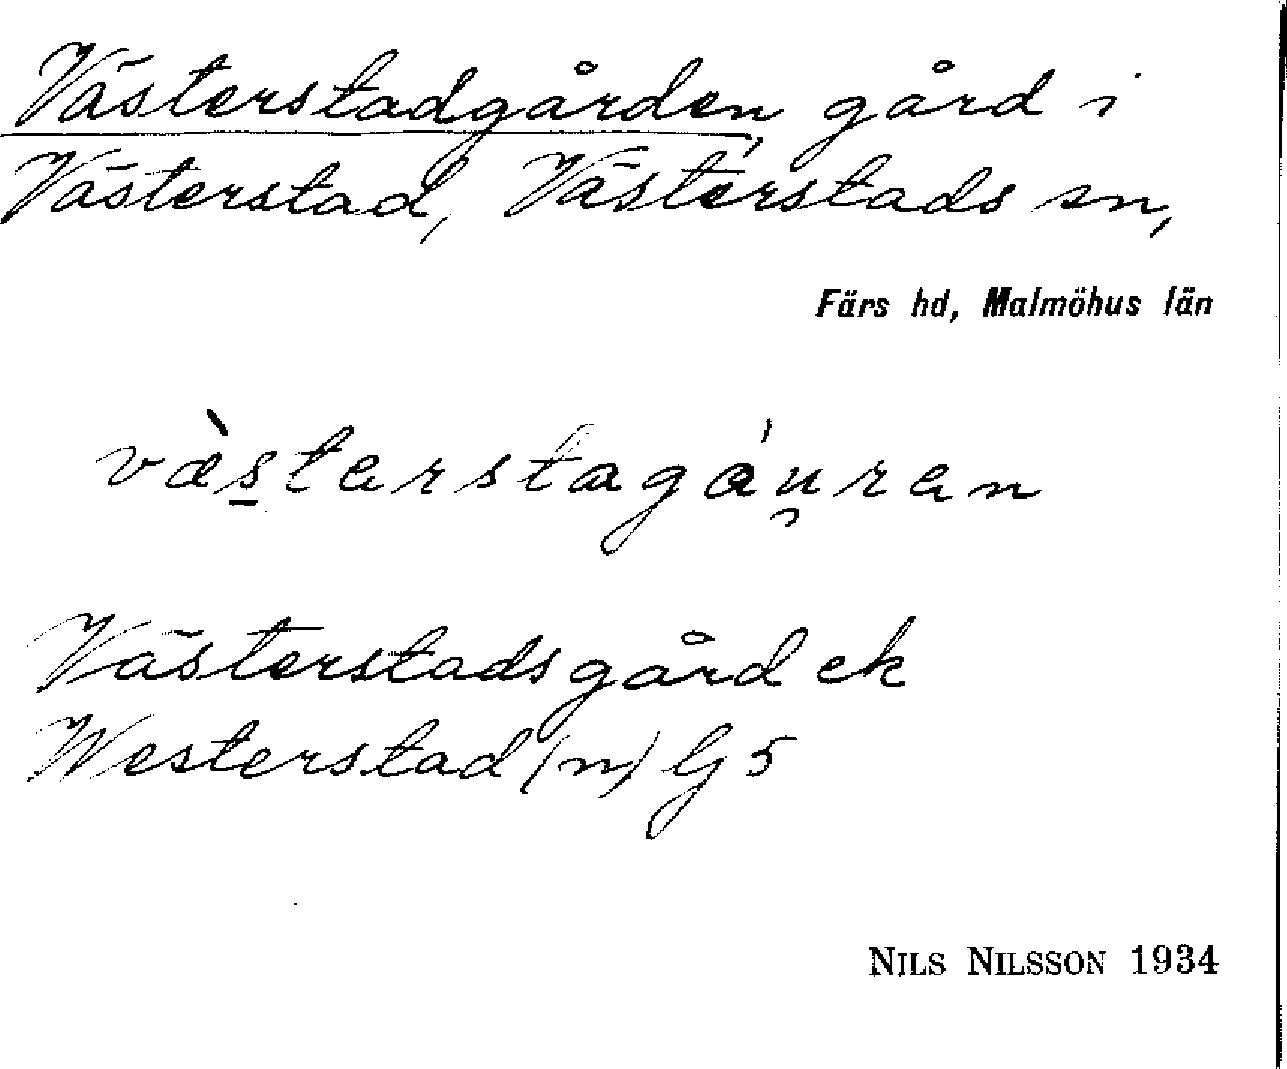 Västerstadgården, gård i
Västerstad, Västerstads sn,
Färs hd, Malmöhus län
væ̀s̱tarstagáu̯ran
Västerstadsgård ek
Westerstad (n) G 5
NILS NILSSON 1934